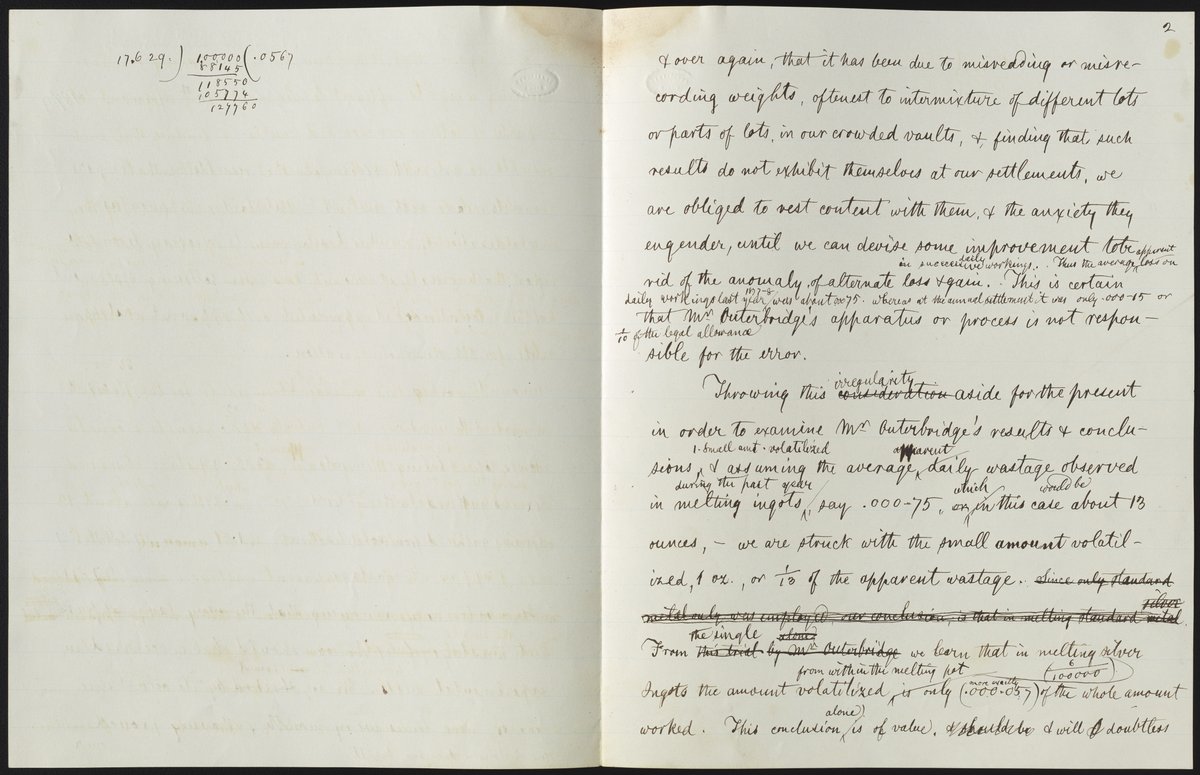 17.629.) 100000 (.0567
88145
118550
105774
127760
2
& over again, that it has been due to misreading or misre-
cording weights, oftenest to intermixture of different lots
or parts of lots, in our crowded vaults, & finding that such
results do not exhibit themselves at our settlements, we
are obliged to rest content with them, & the anxiety they
engender, until we can devise some improvement to be
in successive daily workings. Thus the average apparent loss on
rid of the anomaly, of alternate loss & gain. This is certain
daily workings last year 1877-8 was about 0075. whereas at the annual settlement it was only .000-15 or
that Mr Outerbridge's apparatus or process is not respon-
1/10 of the legal allowance
sible for the error.
irregularity
Throwing this consideration aside for the present
in order to examine Mr Outerbridge's results & conclu-
1. small amt. volatilized apparent
sions, & assuming the average daily wastage observed
during the past year which would be
in melting ingots, say .000-75, or in this case about 13
ounces, - we are struck with the small amount volatil-
ized, 1 oz., or 1/13 of the apparent wastage. Since only standard
silver
metal only was employed our conclusion, is that in melting standard metal
the single alone
From this trial by Mr Outerbridge we learn that in melting silver
from within the melting pot 6/100000
Ingots the amount volatilized is only (more exactly .000.057) of the whole amount
alone
worked. This conclusion is of value, & should be & will doubtless